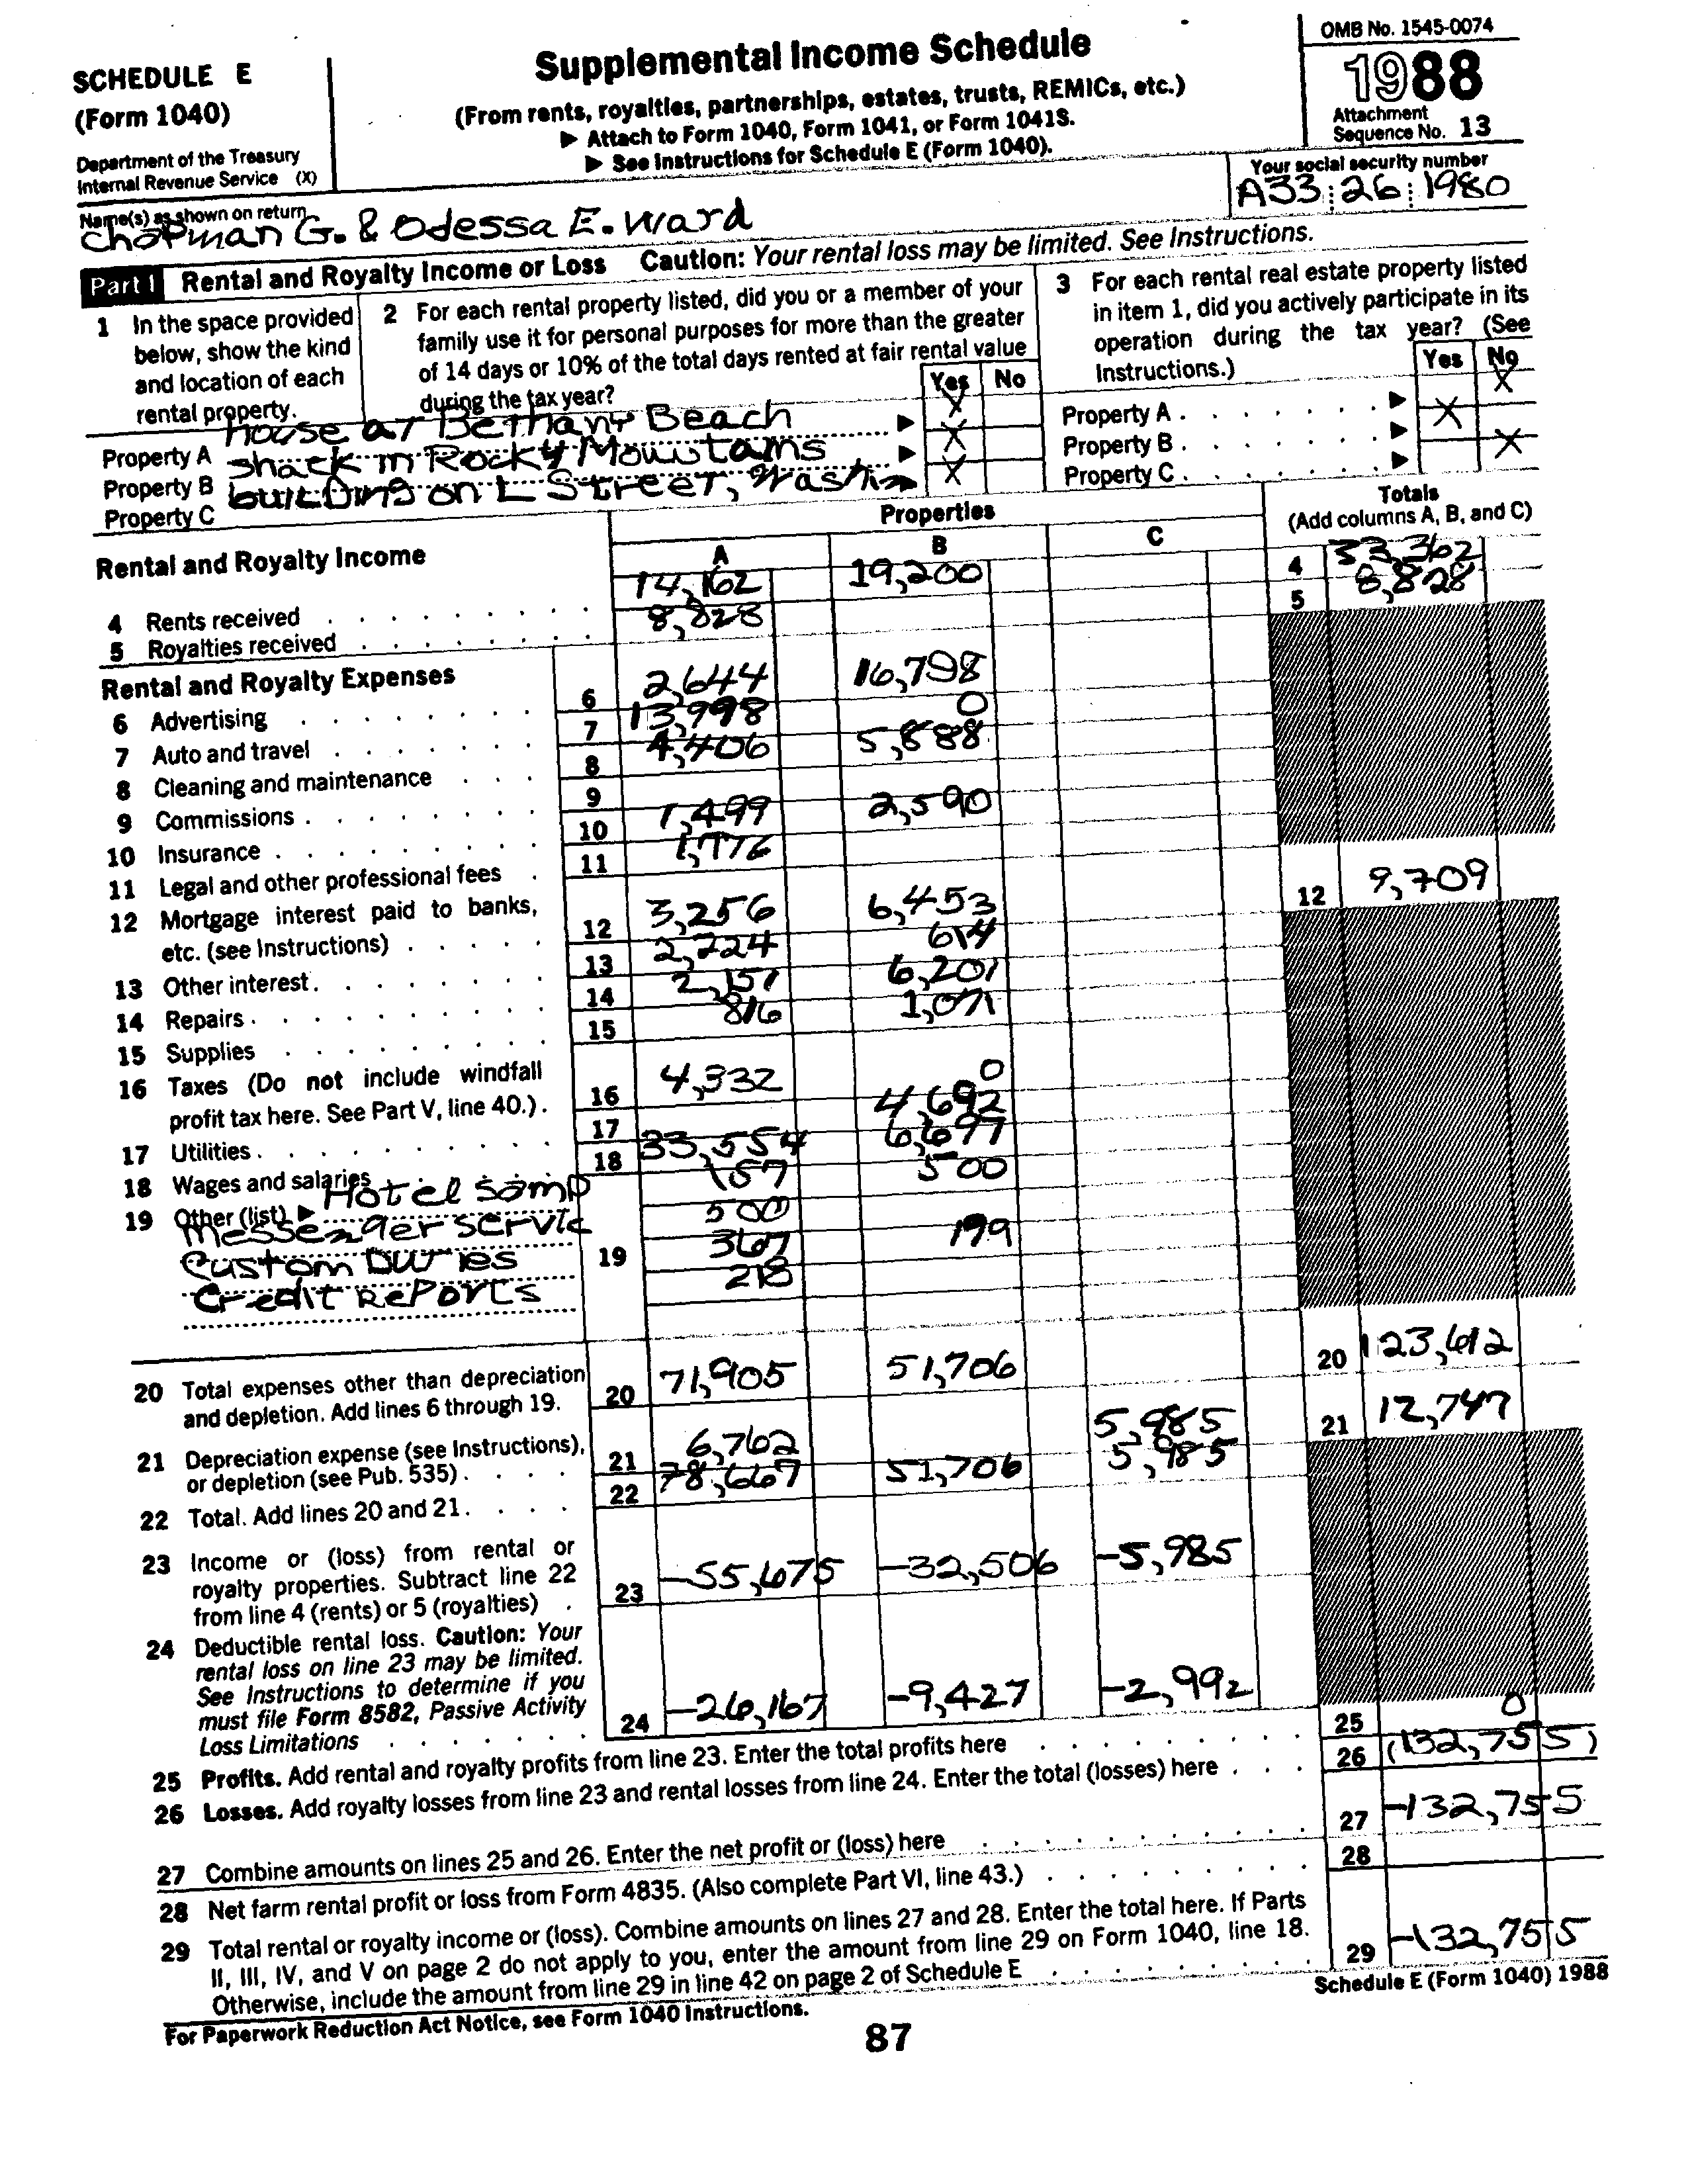 SCHEDULE E
(Form 1040)
Department of the Treasury
Internal Revenue Service (X)
Supplemental Income Schedule
(From rents, royalties, partnerships, estates, trusts, REMICs, etc.)
▶ Attach to Form 1040, Form 1041, or Form 1041S.
▶ See Instructions for Schedule E (Form 1040).
OMB No. 1545-0074
1988
Attachment
Sequence No. 13
Name(s) as shown on return
Chapman G. & Odessa E. Ward
Your social security number
A33 26 1980
Part I Rental and Royalty Income or Loss Caution: Your rental loss may be limited. See Instructions.
1 In the space provided
below, show the kind
and location of each
rental property.
2 For each rental property listed, did you or a member of your
family use it for personal purposes for more than the greater
of 14 days or 10% of the total days rented at fair rental value
during the tax year?
Yes No
3 For each rental real estate property listed
in item 1, did you actively participate in its
operation during the tax year? (See
Instructions.)
Yes No
Property A house at Bethany Beach ▶ X
Property B shack in Rocky Mountains ▶ X
Property C building on L Street, Washin ▶ X
Property A . ▶ X
Property B . ▶ X
Property C . ▶ X
Rental and Royalty Income
Properties
A B C
Totals
(Add columns A, B, and C)
4 Rents received 14,162 19,200 4 33,362
5 Royalties received 8,828 5 8,828
Rental and Royalty Expenses
6 Advertising 6 2,644 16,798
7 Auto and travel 7 13,998 0
8 Cleaning and maintenance 8 4,406 5,888
9 Commissions 9
10 Insurance 10 1,499 2,590
11 Legal and other professional fees 11 1,776
12 Mortgage interest paid to banks,
etc. (see Instructions) 12 3,256 6,453 12 9,709
13 Other interest 13 2,724 614
14 Repairs 14 2,151 6,201
15 Supplies 15 816 1,071
16 Taxes (Do not include windfall
profit tax here. See Part V, line 40.) 16 4,332 0
17 Utilities 17 4,692
18 Wages and salaries 18 33,554 6,697
19 Other (list) ▶ Hotel somp 157 500
messenger servic 500
Custom Duties 19 367 199
Credit Reports 218
20 Total expenses other than depreciation
and depletion. Add lines 6 through 19. 20 71,905 51,706 20 123,612
21 Depreciation expense (see Instructions),
or depletion (see Pub. 535) 21 6,762 5,985 21 12,747
22 Total. Add lines 20 and 21 22 78,667 51,706 5,985
23 Income or (loss) from rental or
royalty properties. Subtract line 22
from line 4 (rents) or 5 (royalties) 23 -55,675 -32,506 -5,985
24 Deductible rental loss. Caution: Your
rental loss on line 23 may be limited.
See Instructions to determine if you
must file Form 8582, Passive Activity
Loss Limitations 24 -26,167 -9,427 -2,992
25 Profits. Add rental and royalty profits from line 23. Enter the total profits here 25 0
26 Losses. Add royalty losses from line 23 and rental losses from line 24. Enter the total (losses) here 26 (132,755)
27 Combine amounts on lines 25 and 26. Enter the net profit or (loss) here 27 -132,755
28 Net farm rental profit or loss from Form 4835. (Also complete Part VI, line 43.) 28
29 Total rental or royalty income or (loss). Combine amounts on lines 27 and 28. Enter the total here. If Parts
II, III, IV, and V on page 2 do not apply to you, enter the amount from line 29 on Form 1040, line 18.
Otherwise, include the amount from line 29 in line 42 on page 2 of Schedule E 29 -132,755
For Paperwork Reduction Act Notice, see Form 1040 Instructions.
Schedule E (Form 1040) 1988
87